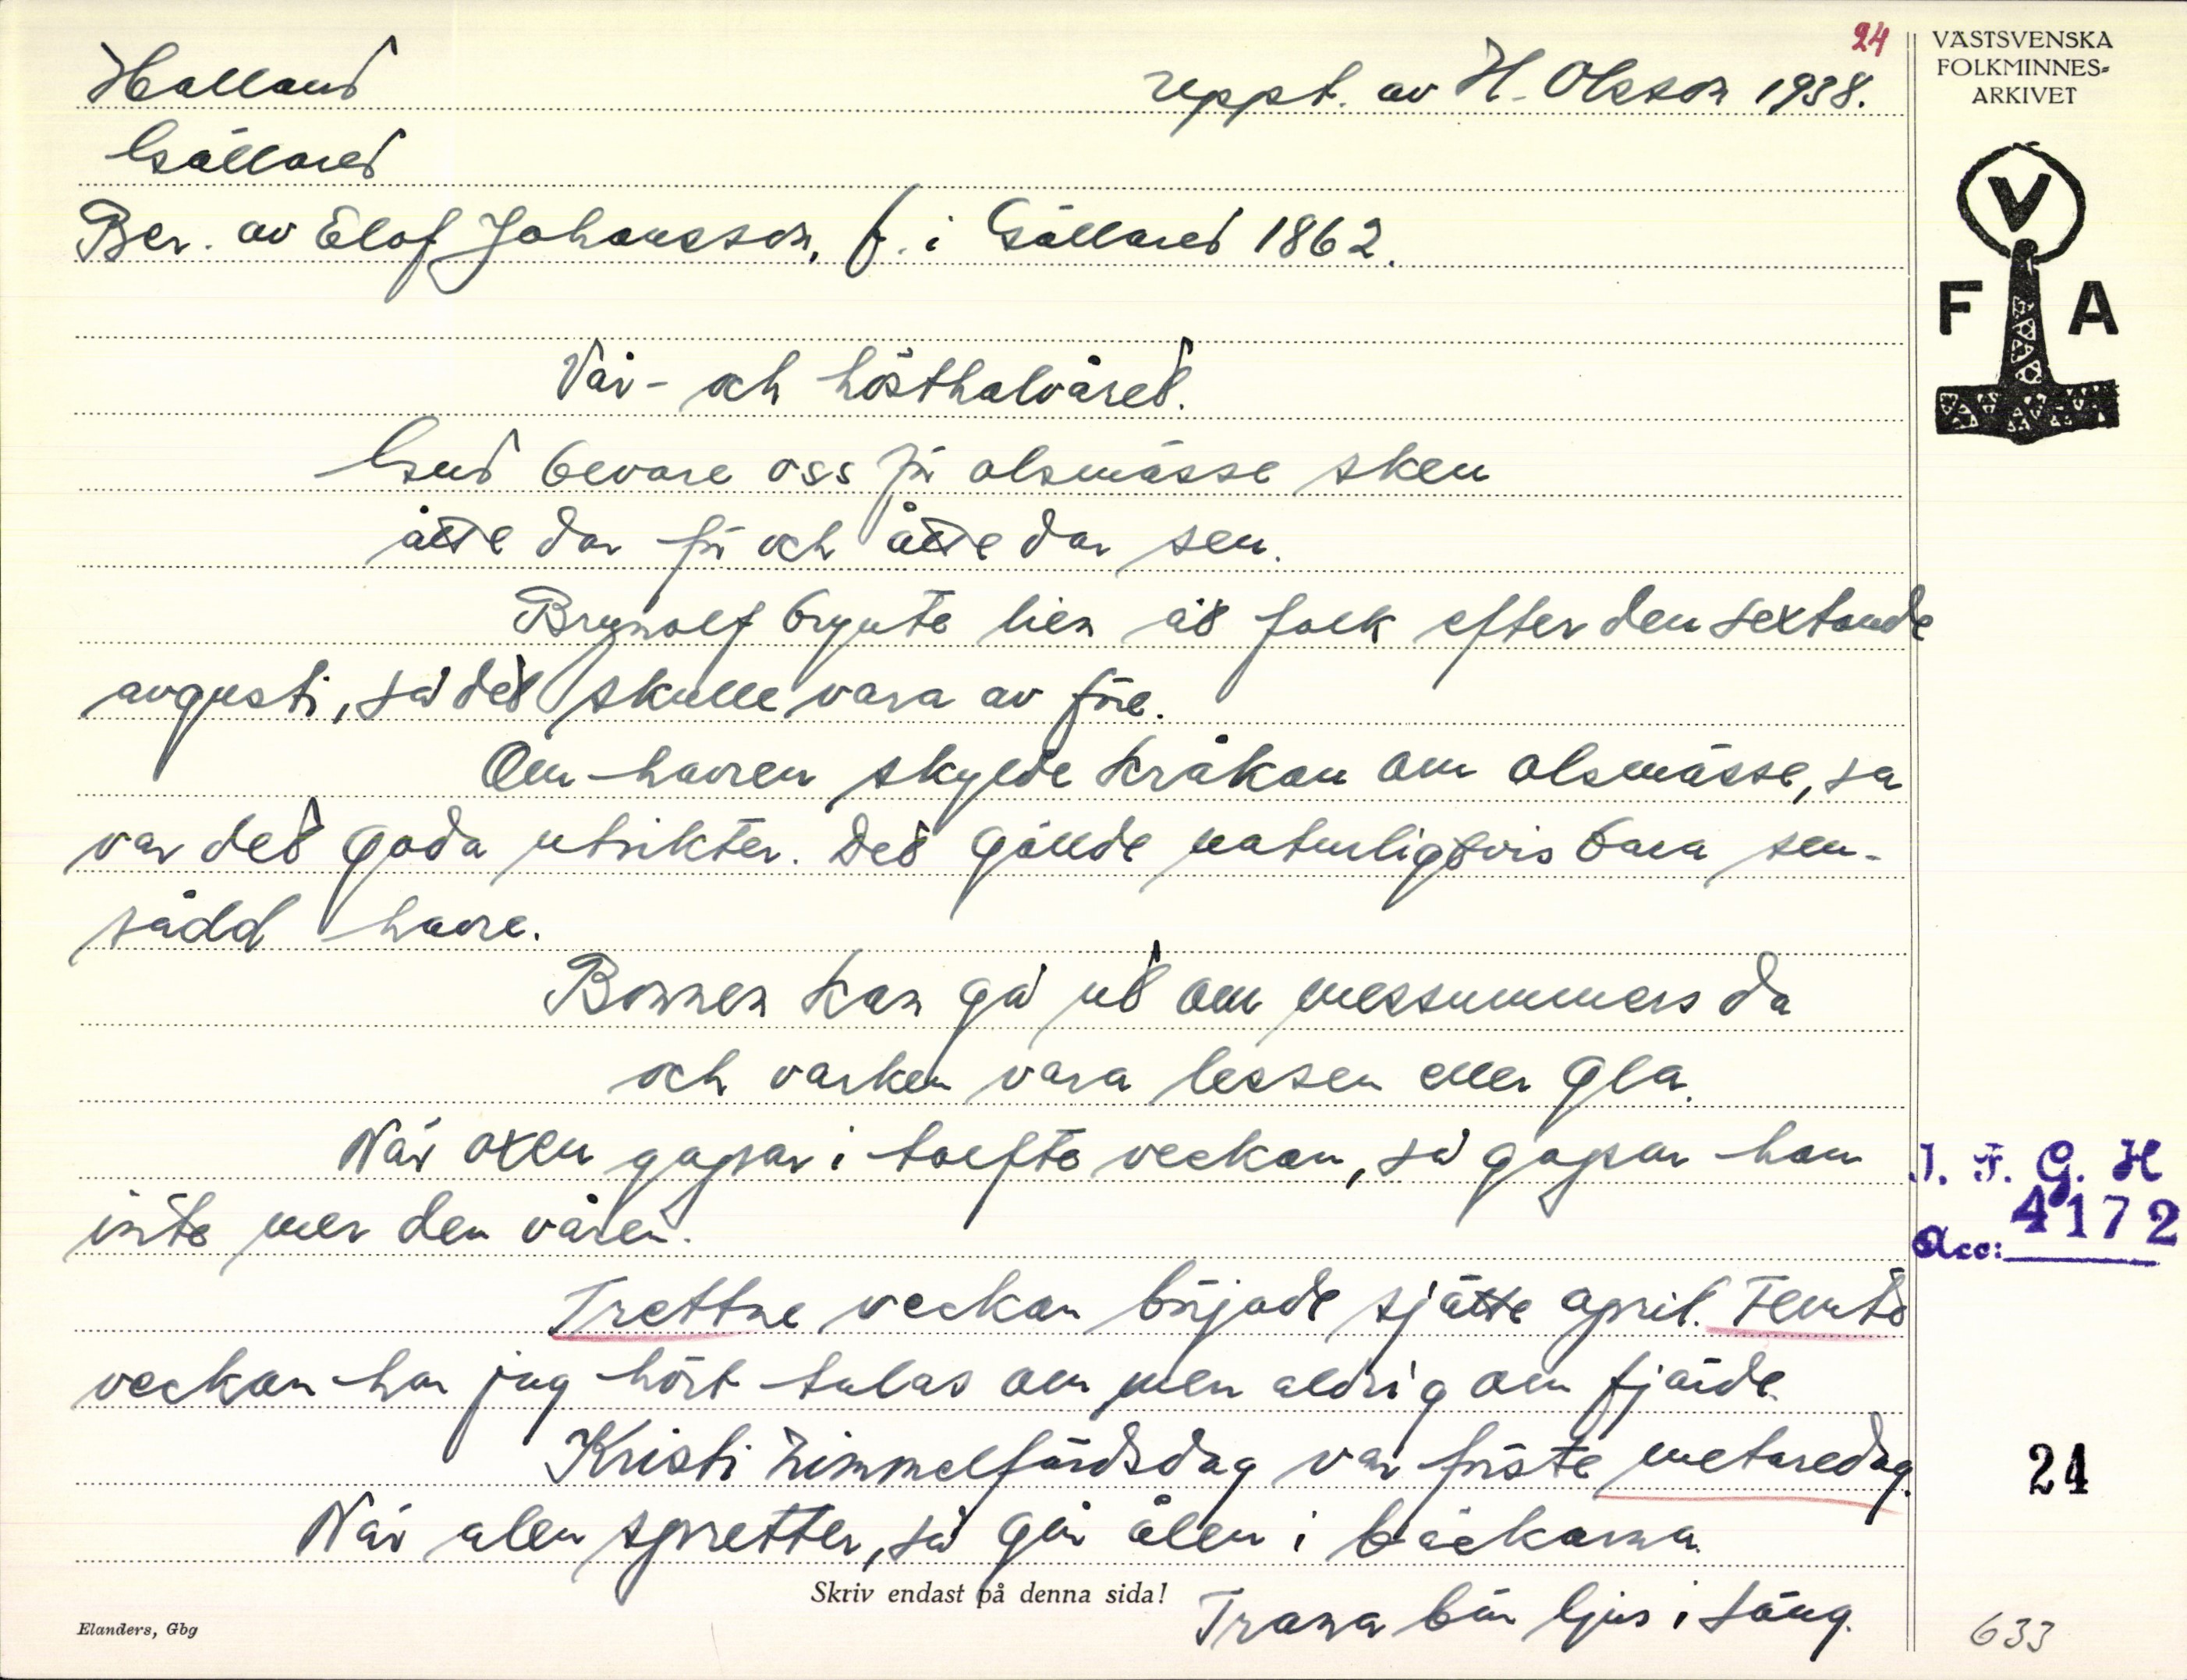 24
Halland
uppt. av H. Olsson 1938.
Gällared
Ber. av Elof Johansson, f. i Gällared 1862.
Vår- och hösthalvåret.
Gud bevare oss för olsmässe sken
åtte dar för och åtte dar sen.
Brynolf bryute lien åt folk efter den sextonde
augusti, så det skulle vara av före.
Om havren skylde kråkan om olsmässe, så
var det goda utsikter. Det gällde naturligtvis bara sen-
sådd havre.
Bonnen kan gå ut om messummers da
och varken vara lessen eller gla.
När oxen gapar i tolfte veckan, så gapar han
inte mer den våren.
Trettne veckan började sjätte april. Femte
veckan har jag hört talas om men aldrig om fjärde.
Kristi himmelfärdsdag var förste metaredag.
När alen spretter, så går ålen i bäckarna.
Trana bär ljus i säng.
Skriv endast på denna sida!
Elanders, Gbg
VÄSTSVENSKA
FOLKMINNES-
ARKIVET
V
F A
I. F. G. H
4172
Acc:
24
633